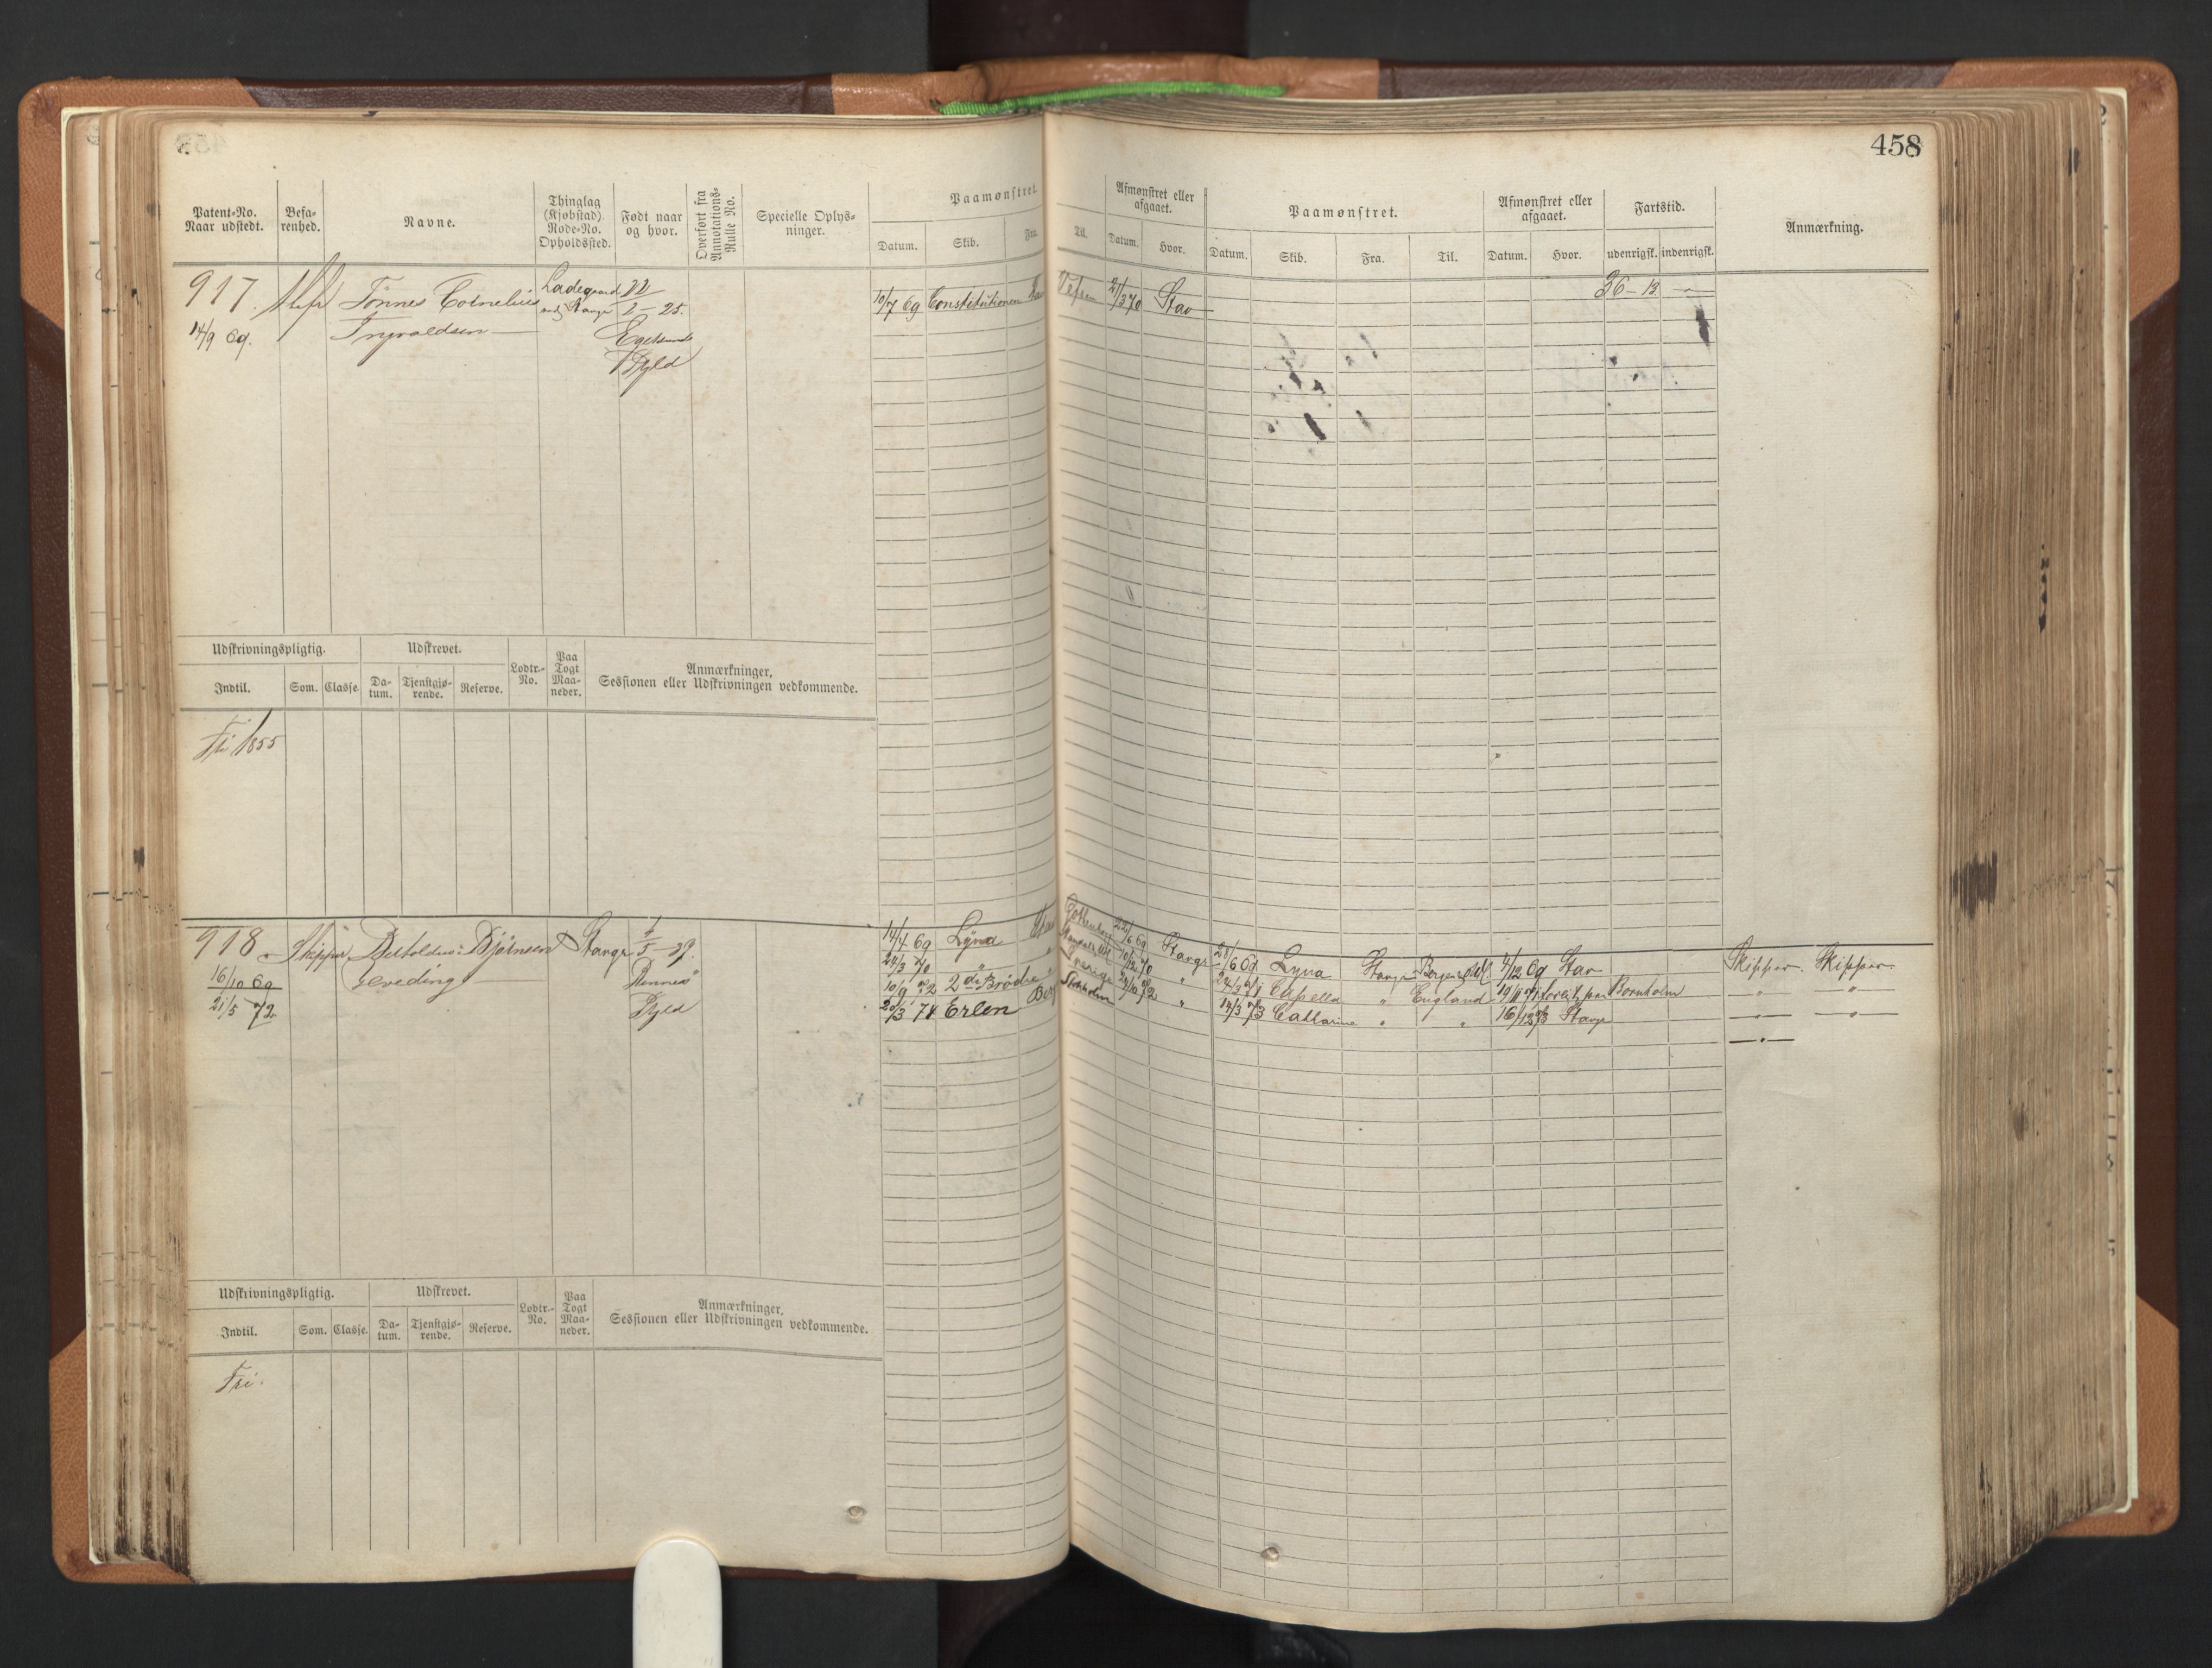 458
Patent-No. Naar udstedt.
Befarenhed.
Navne.
Thinglag (Kjøbstad) Rode-No. Opholdssted.
Født naar og hvor.
Overført fra Annotations-Rulle No.
Specielle Oplysninger.
Paamønstret.
Datum. Skib. Fra. Til.
Afmønstret eller afgaaet.
Datum. Hvor.
Paamønstret.
Datum. Skib. Fra. Til.
Afmønstret eller afgaaet.
Datum. Hvor.
Fartstid.
udenrigsk. indenrigsk.
Anmærkning.
917. Tønnes Cornelius Ladegaard 22
14/9 69. Ingvaldsen 2 - 25.
Egersund
Dyld
10/7 69 Constitutionen Vefsen 21/3 70 Stav
36 - 13
Udskrivningspligtig. Udskrevet. Lodtr.-No. Paa Togt Maaneder. Anmærkninger, Sessionen eller Udskrivningen vedkommende.
Indtil. Som. Classe. Datum. Tjenstgjørende. Reserve.
Fri 1855
918 Skipper Bertoldus Bjørnsen Stavgr 5 - 29.
16/10 69 Rennesø
21/5 72 Dyld
14/4 69 Lyna 22/6 69 Stavgr 28/6 69 Lyna Stavgr Bergen 4/12 69 Stav Skipper. Skipper.
24/3 70 " " Capella " England 19/11 71 forlist paa Bornholm - " - - " -
10/9 72 2de Brødre Sverige " 14/3 73 Catharine " " 16/12 73 Stavgr - " - - " -
20/3 74 Erlen Stokholm - " -
Udskrivningspligtig. Udskrevet. Lodtr.-No. Paa Togt Maaneder. Anmærkninger, Sessionen eller Udskrivningen vedkommende.
Indtil. Som. Classe. Datum. Tjenstgjørende. Reserve.
Fri.